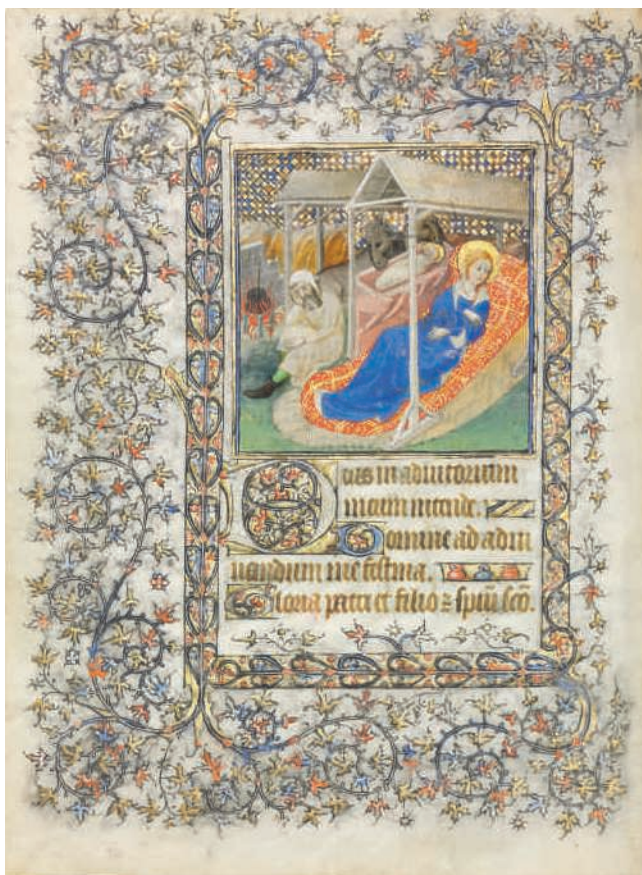 Deus in adiutorium
meum intende.
Domine ad adiu
uandum me festina.
Gloria patri et filio ⁊ spiũ sc̃o.